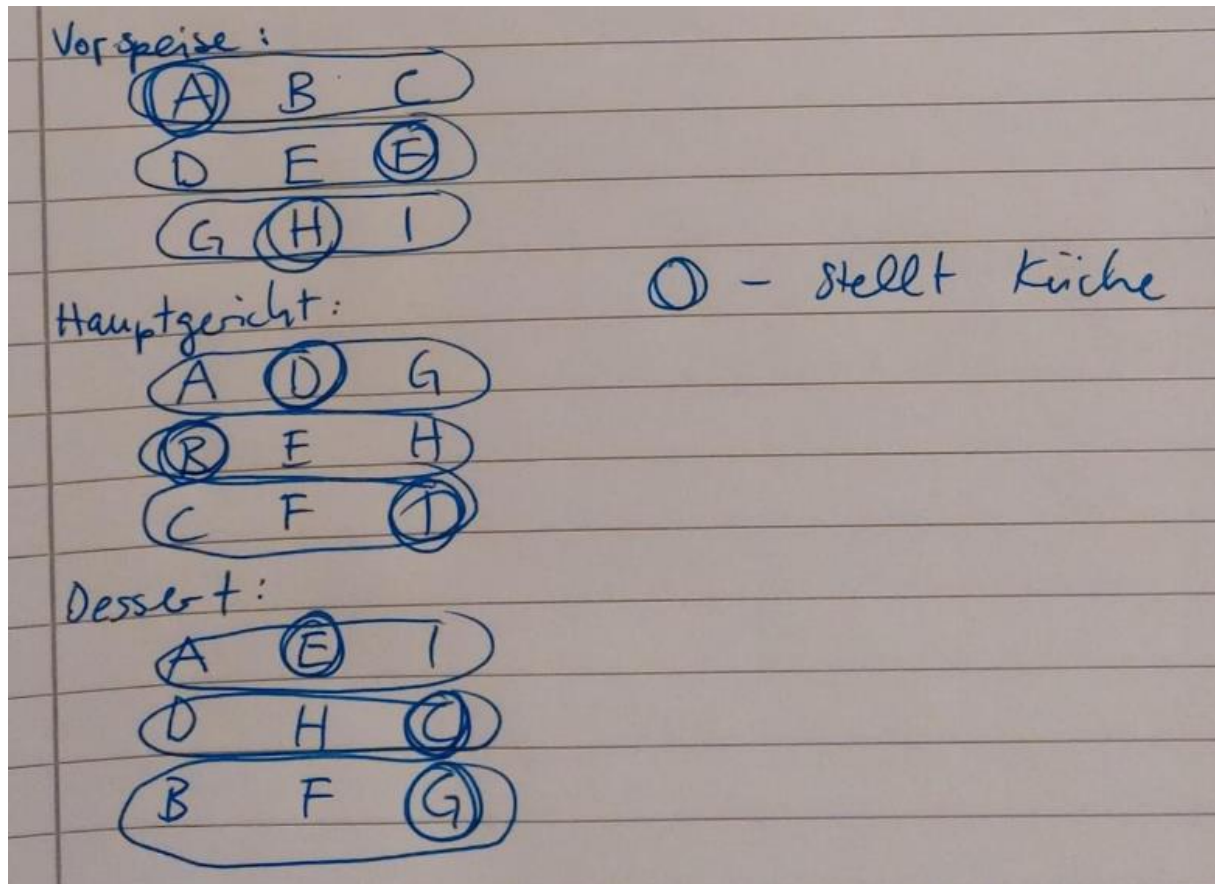 Vorspeise:
A B C
D E E
G H I
O - stellt Küche
Hauptgericht:
A D G
B E H
C F I
Dessert:
A E I
D H C
B F G